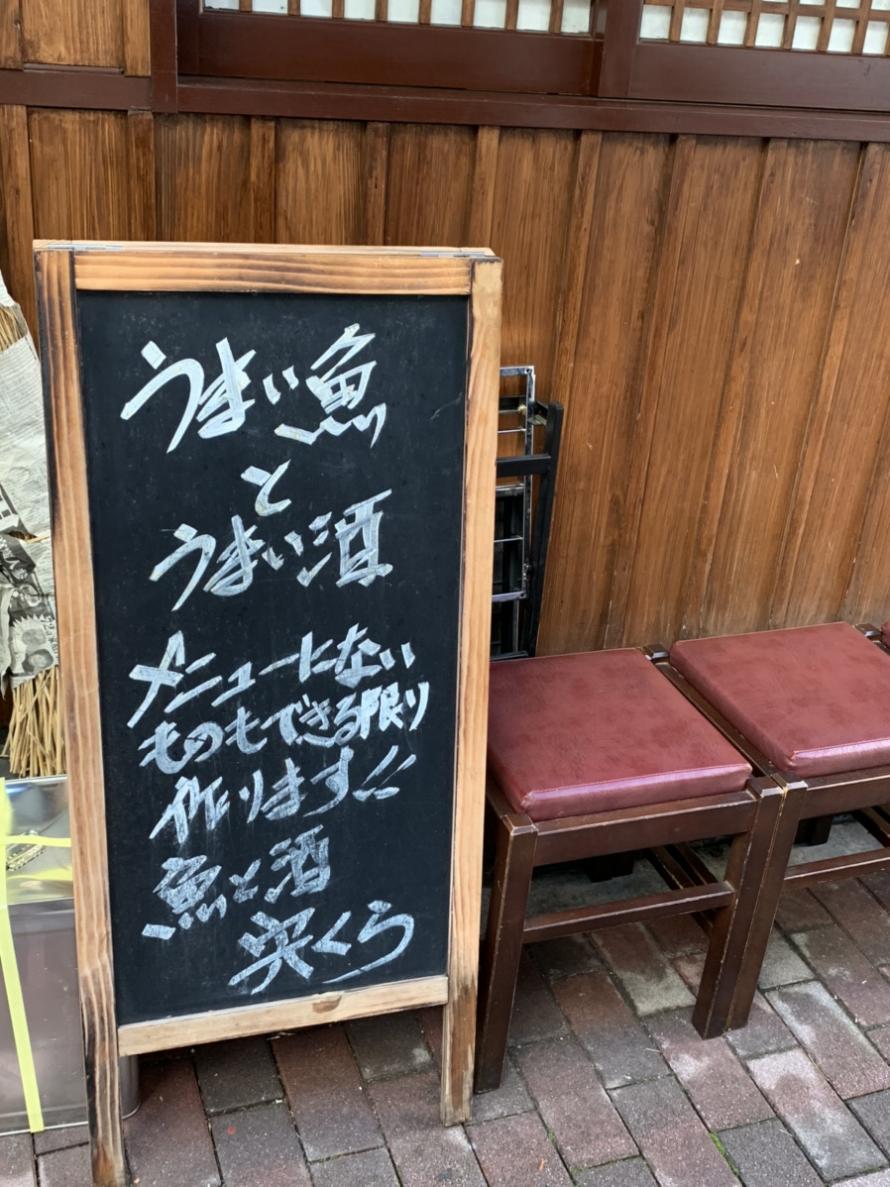 うまい魚
と
うまい酒
メニューにない
ものもできる限り
作ります!!
魚と酒
央くら